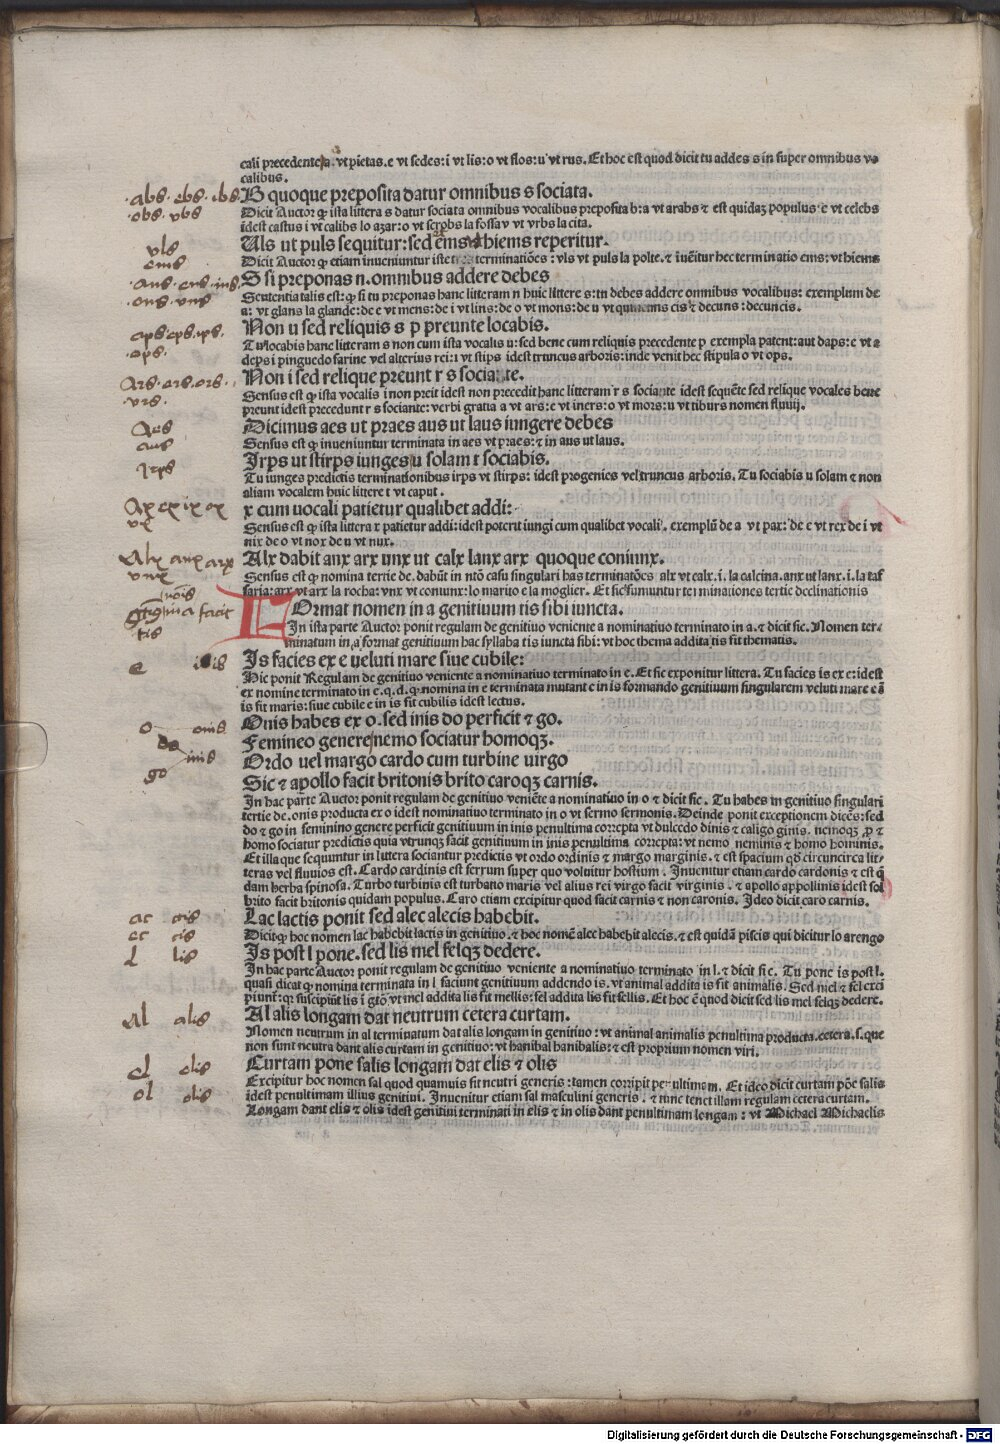 cali precedente a. vt pietas. e vt sedes: i vt lis: o vt flos: u vt rus. Et hoc est quod dicit tu addes s in super omnibus vo
calibus.
B quoque preposita datur omnibus s sociata.
Dicit Auctor ꝙ ista littera s datur sociata omnibus vocalibus preposita b: a vt arabs ⁊ est quidaꝫ populus· e vt celebs
idest castus i vt calibs lo azar: o vt scrobs la fossa v vt vrbs la cita.
Uls ut puls sequitur: sed ems vt hiems reperitur.
Dicit Auctor ꝙ etiam inueniuntur iste terminatiões: vls vt puls la polte. ⁊ iuẽitur hec terminatio ems: vt hiems
S si preponas n. omnibus addere debes
Sententia talis est: ꝙ si tu preponas hanc litteram n huic littere s: tu debes addere omnibus vocalibus: exemplum de
a: vt glans la glande: de e vt mens: de i vt lins: de o vt mons: de u vt cis ⁊ decuns: decuncis.
Non u sed reliquis s p preunte locabis.
Tu locabis hanc litteram s non cum ista vocalis u: sed bene cum reliquis precedente p exempla patent: aut daps: e vt a
deps i pinguedo farine vel alterius rei: i vt stips idest truncus arboris: inde venit hec stipula o vt ops.
Non i sed relique preunt r s sociante.
Sensus est ꝙ ista vocalis i non preit idest non precedit hanc litteram r s sociante idest sequẽte sed relique vocales bene
preunt idest precedunt r s sociante: verbi gratia a vt ars: e vt iners: o vt mors: u vt tiburs nomen fluuij.
Dicimus aes ut praes aus ut laus iungere debes
Sensus est ꝙ inueniuntur terminata in aes vt praes: ⁊ in aus ut laus.
Irps ut stirps iunges u solam t sociabis.
Tu iunges predictis terminationibus irps vt stirps: idest progenies vel truncus arboris. Tu sociabis u solam ⁊ non
aliam vocalem huic littere t vt caput.
x cum uocali patietur qualibet addi:
Sensus est ꝙ ista littera x patietur addi: idest poterit iungi cum qualibet vocali. exemplũ de a vt pax: de e vt rex de i vt
nix de o vt nox de u vt nux.
Alx dabit anx arx unx ut calx lanx arx quoque coniunx.
Sensus est ꝙ nomina tertie de. dabũt in ntõ casu singulari has terminatões alx vt calx. i. la calcina. anx ut lanx. i. la taf
faria: arx vt arx la rocha: vnx vt coniunx: lo mario e la moglier. Et sic sumuntur terminationes tertie declinationis
FOrmat nomen in a genitiuum tis sibi iuncta.
In ista parte Auctor ponit regulam de genitiuo veniente a nominatiuo terminato in a. ⁊ dicit sic. Nomen ter-
minatum in a format genitiuum hac syllaba tis iuncta sibi: vt hoc thema addita tis fit thematis.
Is facies ex e ueluti mare siue cubile:
Hic ponit Regulam de genitiuo veniente a nominatiuo terminato in e. Et sic exponitur littera. Tu facies is ex e: idest
ex nomine terminato in e. q. d. ꝙ nomina in e terminata mutant e in is formando genitiuum singularem veluti mare e ã
is fit maris: siue cubile e in is fit cubilis idest lectus.
Onis habes ex o. sed inis do perficit ⁊ go.
Femineo genere nemo sociatur homoqꝫ.
Ordo uel margo cardo cum turbine uirgo
Sic ⁊ apollo facit britonis brito caroqꝫ carnis.
In hac parte Auctor ponit regulam de genitiuo veniẽte a nominatiuo in o ⁊ dicit sic. Tu habes in genitiuo singulari
tertie de. onis producta ex o idest nominatiuo terminato in o vt sermo sermonis. Deinde ponit exceptionem dicẽs: sed
do ⁊ go in feminino genere perficit genitiuum in inis penultima correpta vt dulcedo dinis ⁊ caligo ginis. nemoqꝫ ꝓ ⁊
homo sociatur predictis quia vtrunqꝫ facit genitiuum in inis penultima correpta: vt nemo neminis ⁊ homo hominis.
Et illa que sequuntur in littera sociantur predictis vt ordo ordinis ⁊ margo marginis. ⁊ est spacium qd̃ circuncirca lit-
teras vel fluuios est. Cardo cardinis est ferrum super quo voluitur hostium. Inuenitur etiam cardo cardonis ⁊ est q̃
dam herba spinosa. Turbo turbinis est turbatio maris vel alius rei virgo facit virginis. ⁊ apollo appollinis idest sol
brito facit britonis quidam populus. Caro etiam excipitur quod facit carnis ⁊ non caronis. Ideo dicit caro carnis.
Lac lactis ponit sed alec alecis habebit.
Dicit ꝙ hoc nomen lac habebit lactis in genitiuo. ⁊ hoc nomẽ alec habebit alecis. ⁊ est quidã piscis qui dicitur lo arengo
Is post l pone. sed lis mel felqꝫ dedere.
In hac parte Auctor ponit regulam de genitiuo veniente a nominatiuo terminato in l. ⁊ dicit sic. Tu pone is post l.
quasi dicat ꝙ nomina terminata in l faciunt genitiuum addendo is. vt animal addita is fit animalis. Sed mel ⁊ fel exci
piunt̃: ꝙ suscipiũt lis ĩ gtõ: vt mel addita lis fit mellis: fel addita lis fit fellis. Et hoc ẽ qnod dicit sed lis mel felqꝫ dedere.
Al alis longam dat neutrum cetera curtam.
Nomen neutrum in al terminatum dat alis longam in genitiuo: vt animal animalis penultima producta. cetera. s. que
non sunt neutra dant alis curtam in genitiuo: vt hanibal hanibalis: ⁊ est proprium nomen viri.
Curtam pone salis longam dat elis ⁊ olis
Excipitur hoc nomen sal quod quamuis sit neutri generis: tamen corripit penultimam. Et ideo dicit curtam põe salis
idest penultimam illius genitiui. Inuenitur etiam sal masculini generis. ⁊ tunc tenet illam regulam cetera curtam.
Longam dant elis ⁊ olis idest genitiui terminati in elis ⁊ in olis dant penultimam longam: vt Michael Michaelis
·abs· ebs· ibs
·obs· vbs
vls
ems
·ans· ens· ins
·ons· vns
aps· eps· ips·
·ops·
Ars· ers· ors·
·vrs·
Aes
aus
Irps
Ax ex ix ox
vx
Alx anx arx
vnx
facit
tis
e
o onis
do
go inis
ac
ec cis
l lis
al alis
el elis
ol olis
Digitalisierung gefördert durch die Deutsche Forschungsgemeinschaft - DFG